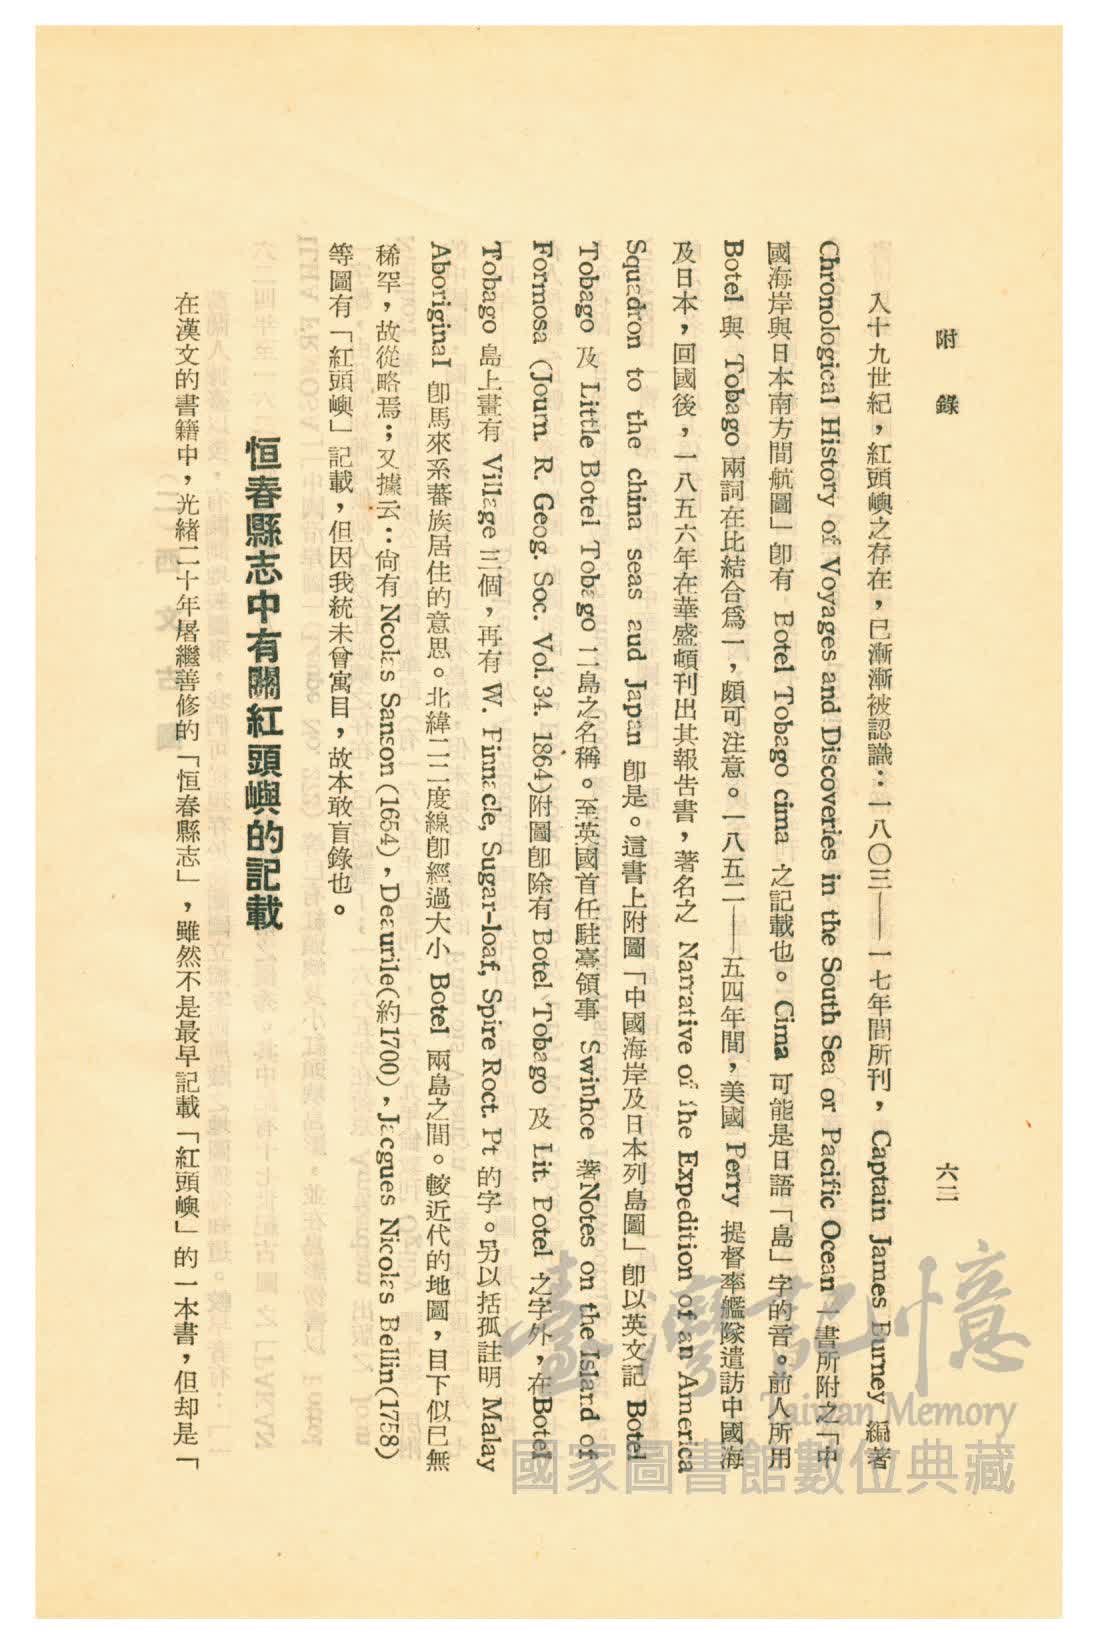 附錄
六三
入十九世紀，紅頭嶼之存在，已漸漸被認識：一八〇三——一七年間所刊，Captain James Burney 編著
Chronological History of Voyages and Discoveries in the South Sea or Pacific Ocean 一書所附之「中
國海岸與日本南方間航圖」卽有 Botel Tobago cima 之記載也。Cima 可能是日語「島」字的音。前人所用
Botel 與 Tobago 兩詞在比結合爲一，頗可注意。一八五二——五四年間，美國 Perry 提督率艦隊遣訪中國海
及日本，回國後，一八五六年在華盛頓刊出其報吿書，著名之 Narrative of the Expedition of an America
Squadron to the china seas aud Japan 卽是。這書上附圖「中國海岸及日本列島圖」卽以英文記 Botel
Tobago 及 Little Botel Tobago 二島之名稱。至英國首任駐臺領事 Swinhoe 著Notes on the Island of
Formosa (Journ. R. Geog. Soc. Vol. 34. 1864)附圖卽除有 Botel Tobago 及 Lit. Botel 之字外，在Botel
Tobago 島上畫有 Village 三個，再有 W. Pinnacle, Sugar-loaf, Spire Roct. Pt 的字。另以括孤註明 Malay
Aboriginal 卽馬來系蕃族居住的意思。北緯二二度線卽經過大小 Botel 兩島之間。較近代的地圖，目下似已無
稀罕，故從略焉；又據云：尙有 Ncolas Sanson (1654)，Deaurile(約1700)，Jacgues Nicolas Bellin(1758)
等圖有「紅頭嶼」記載，但因我統未曾寓目，故本敢盲錄也。
恒春縣志中有關紅頭嶼的記載
在漢文的書籍中，光緒二十年屠繼善修的「恒春縣志」，雖然不是最早記載「紅頭嶼」的一本書，但却是「
臺灣記憶
Taiwan Memory
國家圖書館數位典藏